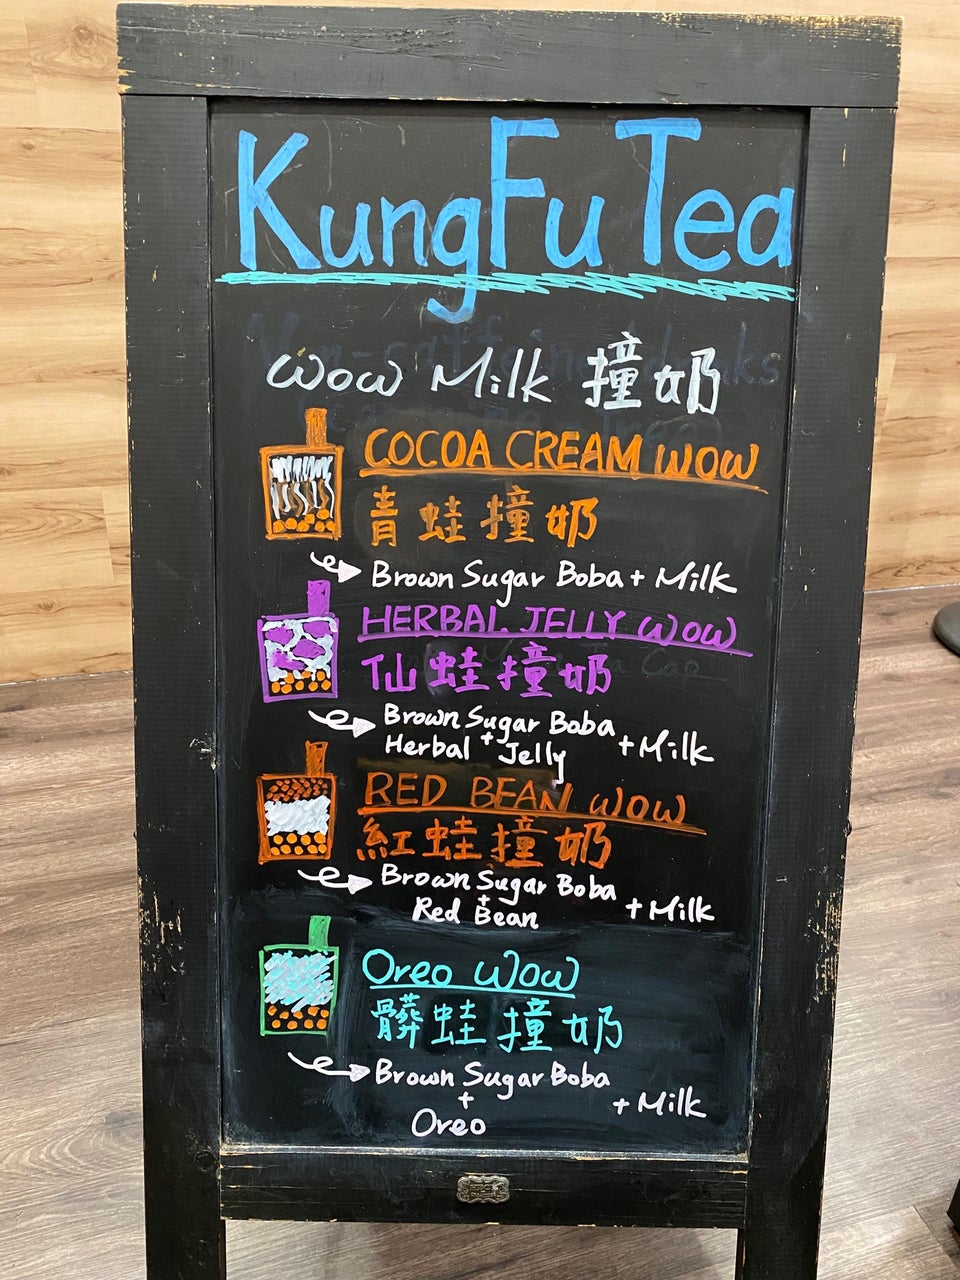 KungFu Tea
Wow Milk 撞奶
COCOA CREAM WOW
青蛙撞奶
Brown Sugar Boba + Milk
HERBAL JELLY WOW
仙蛙撞奶
Brown Sugar Boba
+
Herbal Jelly
+ Milk
RED BEAN WOW
紅蛙撞奶
Brown Sugar Boba
+
Red Bean
+ Milk
Oreo WOW
髒蛙撞奶
Brown Sugar Boba
+
Oreo
+ Milk